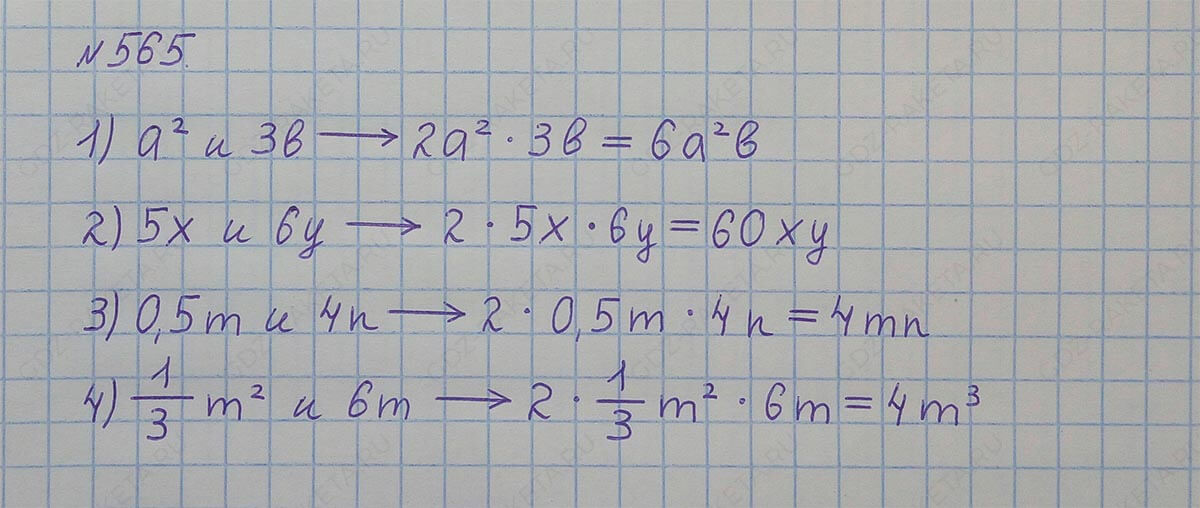 № 565.
1) a² и 3b ⟶ 2a² · 3b = 6a²b
2) 5x и 6y ⟶ 2 · 5x · 6y = 60xy
3) 0,5m и 4n ⟶ 2 · 0,5m · 4n = 4mn
4) 1/3 m² и 6m ⟶ 2 · 1/3 m² · 6m = 4m³
GDZ-RAKETA.RU